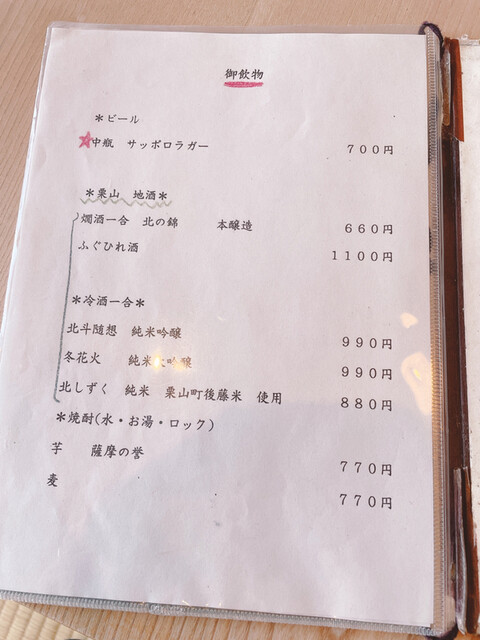 御飲物
＊ビール
☆中瓶 サッポロラガー 700円
＊栗山 地酒＊
燗酒一合 北の錦 本醸造 660円
ふぐひれ酒 1100円
＊冷酒一合＊
北斗随想 純米吟醸 990円
冬花火 純米大吟醸 990円
北しずく 純米 栗山町後藤米 使用 880円
＊焼酎(水・お湯・ロック)
芋 薩摩の誉 770円
麦 770円